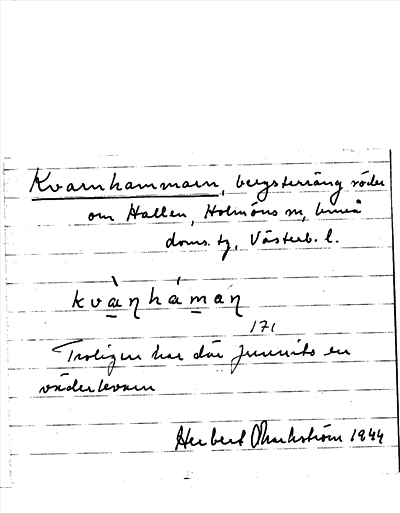 Kvarnhammarn, bergsterräng söder
om Hallen, Holmöns sn, Umeå
doms. tg, Västerb. l.
kvàꞃhámaꞃ
171
Troligen har där funnits en
väderkvarn
Herbert 1944